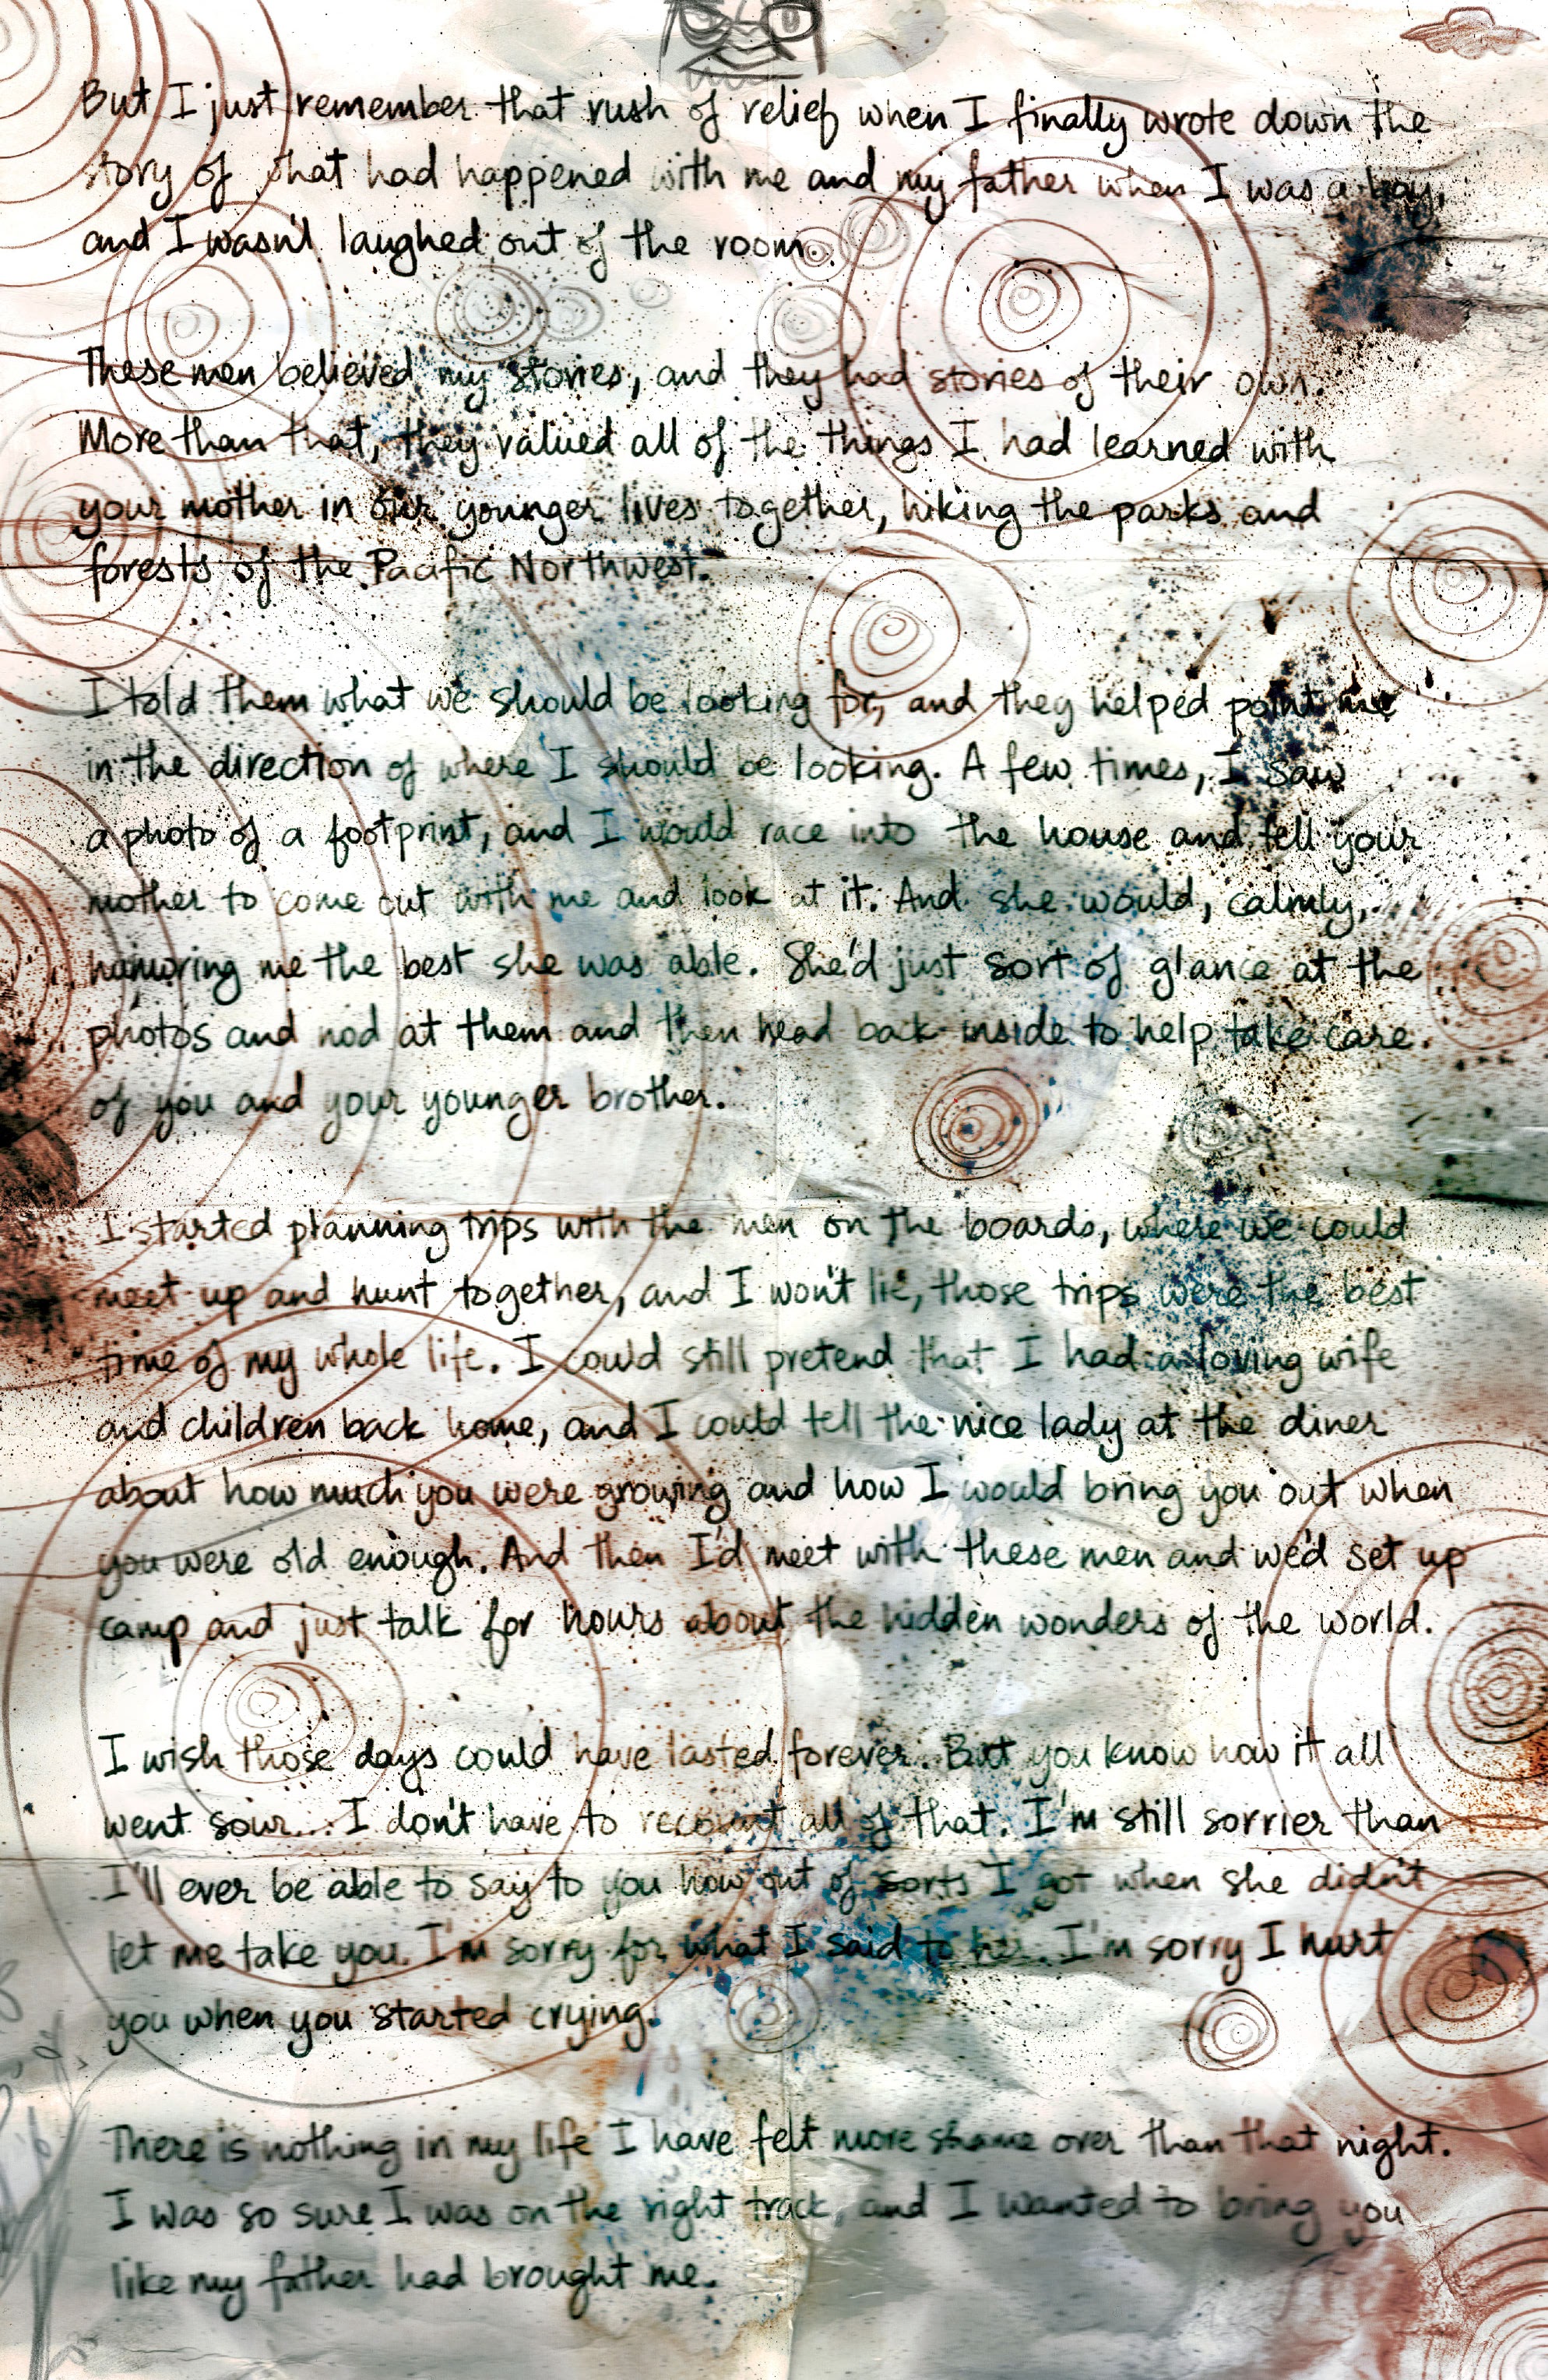 But I just remember that rush of relief when I finally wrote down the
story of what had happened with me and my father when I was a boy,
and I wasn't laughed out of the room.
These men believed my stories, and they had stories of their own.
More than that, they valued all of the things I had learned with
your mother in our younger lives together, hiking the parks and
forests of the Pacific Northwest.
I told them what we should be looking for, and they helped point me
in the direction of where I should be looking. A few times, I saw
a photo of a footprint, and I would race into the house and tell your
mother to come out with me and look at it. And she would, calmly,
humoring me the best she was able. She'd just sort of glance at the
photos and nod at them and then head back inside to help take care
of you and your younger brother.
I started planning trips with the men on the boards, where we could
meet up and hunt together, and I won't lie, those trips were the best
time of my whole life. I could still pretend that I had a loving wife
and children back home, and I could tell the nice lady at the diner
about how much you were growing and how I would bring you out when
you were old enough. And then I'd meet with these men and we'd set up
camp and just talk for hours about the hidden wonders of the world.
I wish those days could have lasted forever. But you know how it all
went sour... I don't have to recount all of that. I'm still sorrier than
I'll ever be able to say to you how out of sorts I got when she didn't
let me take you. I'm sorry for what I said to her. I'm sorry I hurt
you when you started crying.
There is nothing in my life I have felt more shame over than that night.
I was so sure I was on the right track, and I wanted to bring you
like my father had brought me.